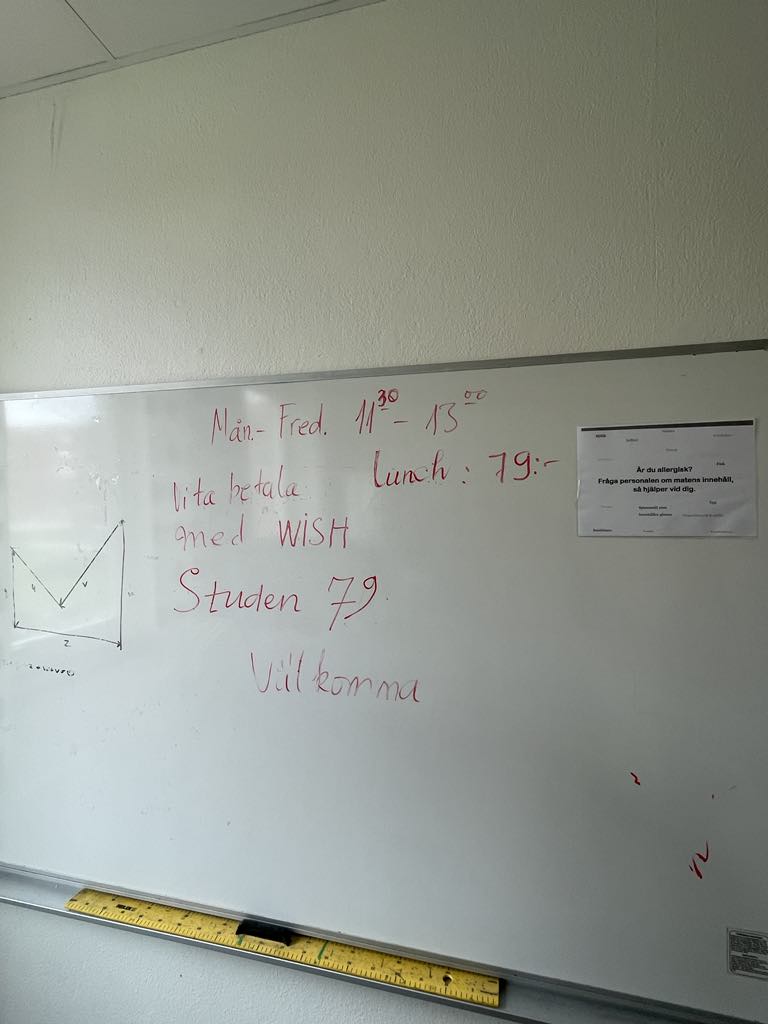 Mån.- Fred. 11³⁰ - 13⁰⁰
Lunch : 79:-
Vi ta betala
med WISH
Studen 79
Välkomma
Är du allergisk?
Fråga personalen om matens innehåll,
så hjälper vid dig.
2